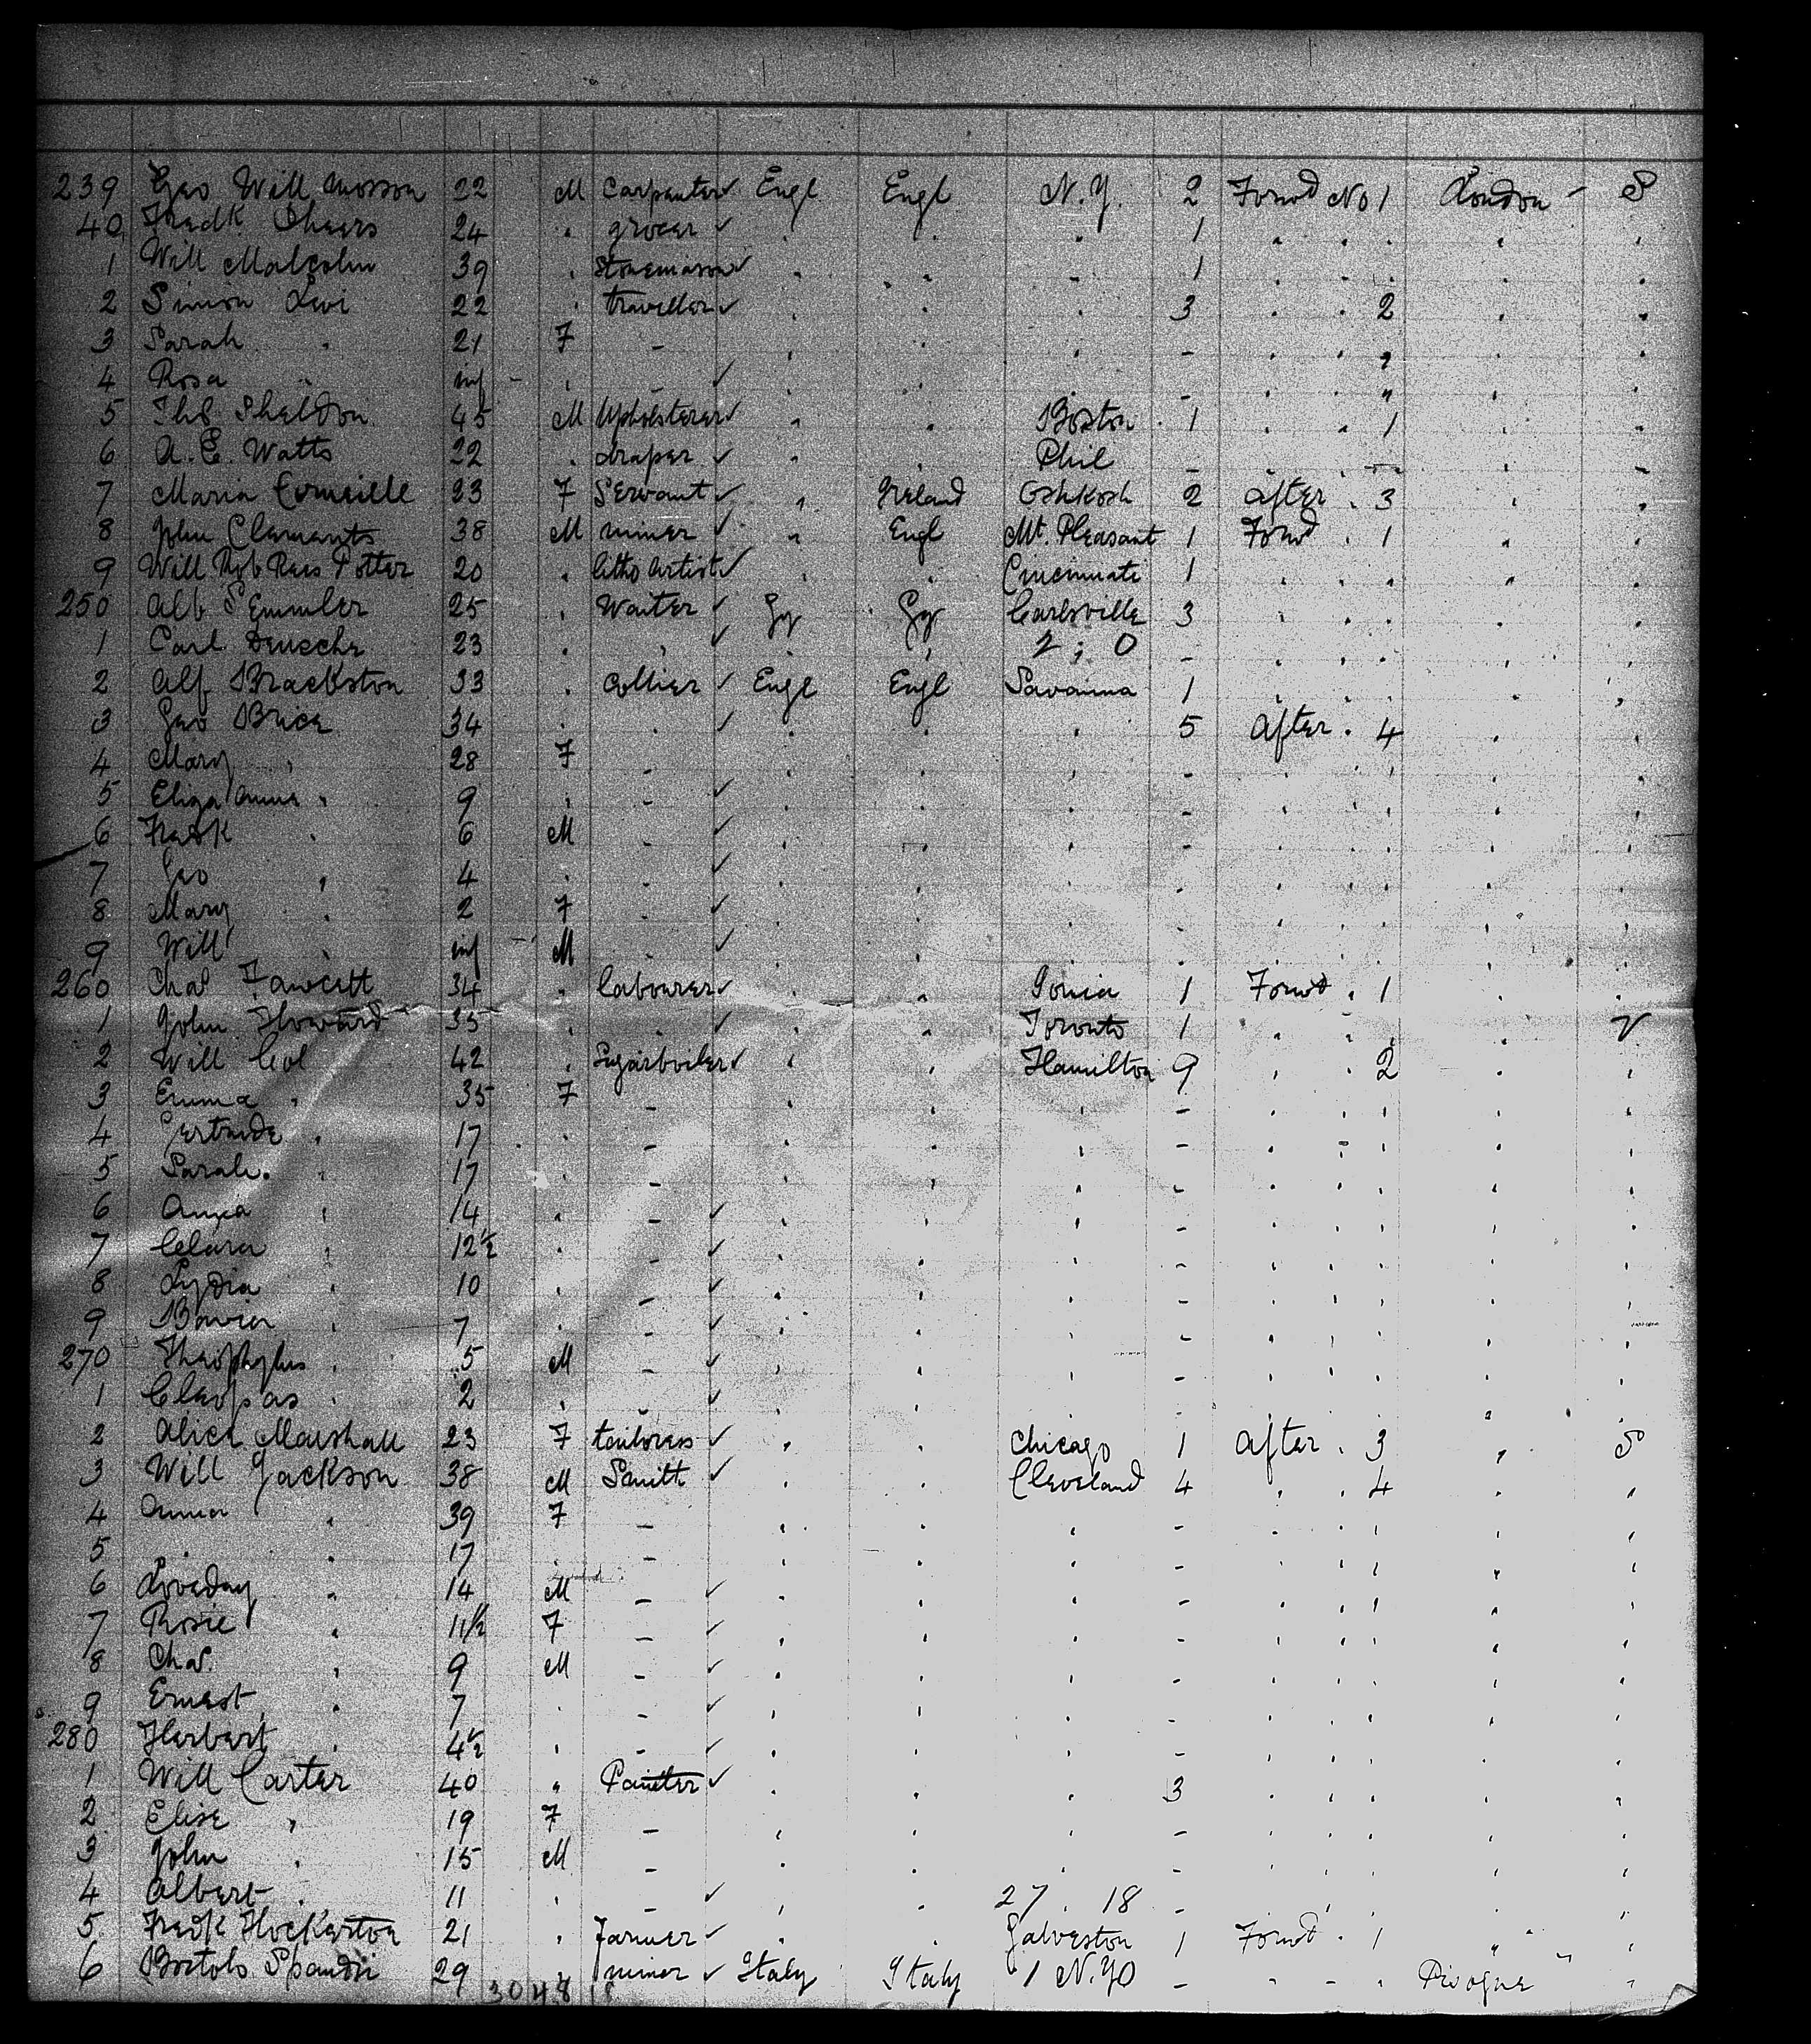 239 Geo Will Mosson 22 M Carpenter ✓ Engl Engl N.Y. 2 Forwd No 1 London - S
40 Fredk Cheers 24 " grocer ✓ " " " 1 " " " " "
1 Will Malcolm 39 " Stonemason ✓ " " " 1 " " " " "
2 Simon Levi 22 " traveller ✓ " " " 3 " " 2 " "
3 Sarah " 21 F - " " " - " " " " "
4 Rosa " inf - " - ✓ " " " - " " " " "
5 Ths Sheldon 45 M Upholsterer ✓ " " Boston 1 " " 1 " "
6 A. E. Watts 22 " draper ✓ " " Phil - " " - " "
7 Maria Corneille 23 F Servant ✓ " Ireland Oshkosh 2 After " 3 " "
8 John Clemants 38 M miner ✓ " Engl Mt. Pleasant 1 Forwd " 1 " "
9 Will Rob Rees Potter 20 " Litho Artist ✓ " " Cincinnati 1 " " " " "
250 Alb. Semmler 25 " Waiter ✓ Gy Gy Carlsville 3 " " " " "
1 Carl 23 " " ✓ " " 2 ; 0 - " " " " "
2 Alf Brackston 33 " Collier ✓ Engl Engl Savanna 1 " " " " "
3 Geo Brice 34 " " ✓ " " " 5 After " 4 " "
4 Mary " 28 F - " " " - " " " " "
5 Eliza Anna " 9 " - ✓ " " " - " " " " "
6 Fredk " 6 M - ✓ " " " - " " " " "
7 Geo " 4 " " ✓ " " " - " " " " "
8 Mary " 2 F " ✓ " " " - " " " " "
9 Will " inf - M " ✓ " " " - " " " " "
260 Chas Fawcett 34 " labourer ✓ " " Ionia 1 Forwd " 1 " "
1 John Howard 35 " " ✓ " " Toronto 1 " " " " V
2 Will Col 42 " Sugarboiler ✓ " " Hamilton 9 " " 2 " "
3 Emma " 35 F - " " " - " " " " "
4 Gertrude " 17 " - " " " - " " " " "
5 Sarah " 17 " - " " " - " " " " "
6 Anna " 14 " - ✓ " " " - " " " " "
7 Clara " 12½ " - ✓ " " " - " " " " "
8 Lydia " 10 " - ✓ " " " - " " " " "
9 " 7 " - ✓ " " " - " " " " "
270 Theophylus " 5 M - ✓ " " " - " " " " "
1 Cleopas " 2 " - ✓ " " " - " " " " "
2 Alice Marshall 23 F tailoress ✓ " " Chicago 1 After " 3 " S
3 Will Jackson 38 M Smith ✓ " " Cleveland 4 " " 4 " "
4 Anna " 39 F - " " " - " " " " "
5 " " 17 " - " " " - " " " " "
6 Loveday " 14 M - ✓ " " " - " " " " "
7 Rosie " 11½ F - ✓ " " " - " " " " "
8 Chas. " 9 M - ✓ " " " - " " " " "
9 Ernest " 7 " - ✓ " " " - " " " " "
280 Herbert " 4½ " - ✓ " " " - " " " " "
1 Will Carter 40 " Painter ✓ " " " 3 " " " " "
2 Elise " 19 F - " " " - " " " " "
3 John " 15 M - " " " - " " " " "
4 Albert " 11 " - ✓ " " 27 . 18 - " " " " "
5 Fredk Hockerton 21 " Farmer ✓ " " Galveston 1 Forwd " 1 " "
6 Bortolo 29 " miner ✓ Italy Italy 1 N.Y. 0 - " " " "
3048